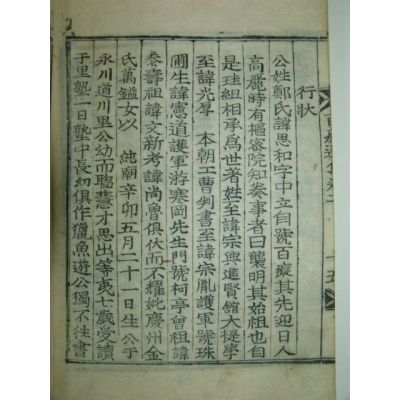 行狀
公姓鄭氏諱思和字中立自號百癡其先迎日人
高麗時有樞密院知奏事者曰襲明其始祖也自
是珪組相承爲世著姓至諱宗興進賢館大提學
至諱光厚 本朝工曹判書至諱宗胤護軍號珠
圃生諱憲道護軍游寒岡先生門號柯亭曾祖諱
泰壽祖諱文新考諱尚曾俱伏而不耀妣慶州金
氏萬鎰女以 純廟辛卯五月二十一日生公于
永川道川里公幼而聰慧才思出等夷七歲受讀
于里塾一日塾中長幼俱作獵魚遊公獨不往書